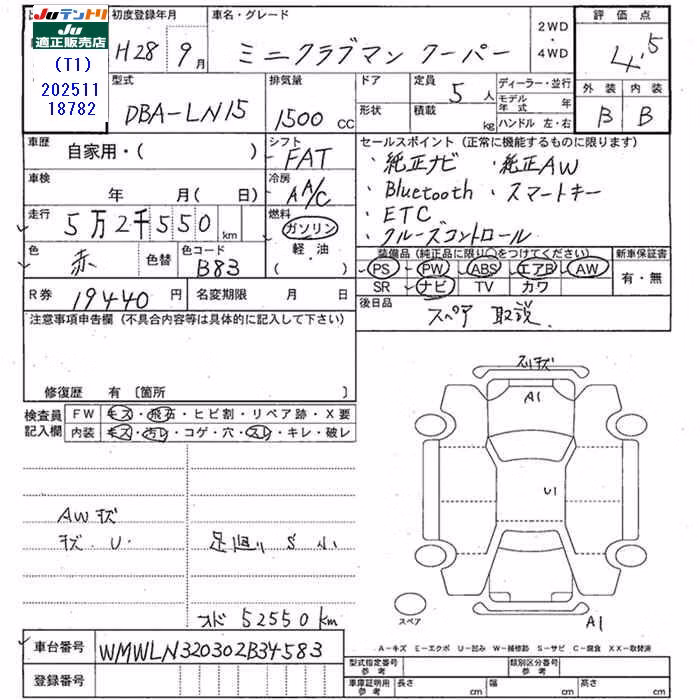 Juテントリ
Ju適正販売店
(T1)
202511
18782
初度登録年月
H28 9月
車名・グレード
ミニクラブマン クーパー
2WD
・
4WD
評価点
4.5
外装 内装
B B
型式
DBA-LN15
排気量
1500 CC
ドア
形状
定員
5人
積載
kg
ディーラー・並行
モデル年式 年
ハンドル 左・右
車歴
自家用・( )
シフト
FAT
車検
年 月( 日)
冷房
A A/C
走行
5万2千550 km
燃料
ガソリン
軽油
色
赤
色替
色コード
B83
R券 19440円
名変期限 月 日
セールスポイント (正常に機能するものに限ります)
・純正ナビ ・純正AW
・Bluetooth ・スマートキー
・ETC
・クルーズコントロール
装備品 (純正品に限り○をつけてください)
新車保証書
PS PW ABS エアB AW
有・無
SR ナビ TV カワ
後日品
スペア 取説
注意事項申告欄 (不具合内容等は具体的に記入して下さい)
修復歴 有 〔箇所 〕
検査員
記入欄
FW キズ・飛石・ヒビ割・リペア跡・X要
内装 キズ・汚レ・コゲ・穴・スレ・キレ・破レ
AWキズ
キズ・U・
足廻り S 小
オド 52550km
スリキズ
A1
U1
A1
スペア
A-キズ E-エクボ U-凹み W-補修跡 S-サビ C-腐食 XX-取替済
車台番号 WMWLN320302B34583
登録番号
型式指定番号
参考
類別区分番号
参考
車庫証明用
参考
長さ cm
幅 cm
高さ cm